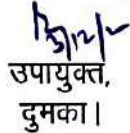 उपायुक्त,
दुमका।